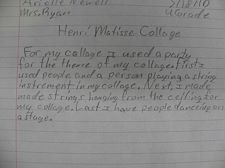 Arielle Newell 5/18/10
Mrs. Ryan 4 Grade
Henri Matisse Collage
For my collage I used a party
for the theme of my collage. First I
used people and a person playing a string
instrement in my collage. Next, I made
made strings hanging from the ceilling for
my collage. Last I have people dancing on
a stage.